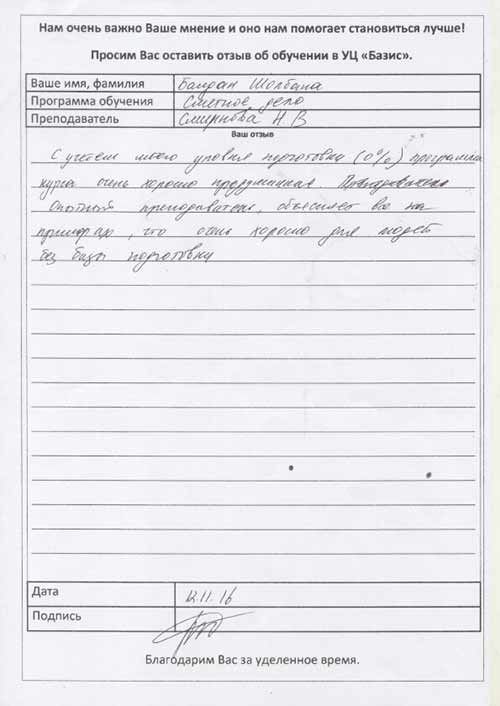 Нам очень важно Ваше мнение и оно нам помогает становиться лучше!
Просим Вас оставить отзыв об обучении в УЦ «Базис».
Ваше имя, фамилия Балдан Шолбана
Программа обучения Сметное дело
Преподаватель Смирнова Н.В
Ваш отзыв
С учетом моего уровня подготовки (0%) программа
курса очень хорошо продуманная.
опытный преподаватель, объясняет все на
примерах, что очень хорошо для людей
без базы подготовки
Дата 12.11.16
Подпись
Благодарим Вас за уделенное время.